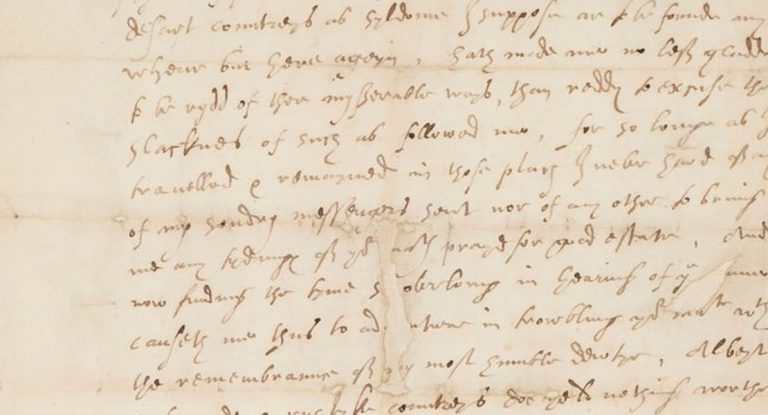 desart countreys as syldome I suppose are to be founde any
wheare but heere ageyn, hath made me no less gladde
to be rydd of ther mysserable ways, than reddy to excuse the
slacknes of such as followed me, for so longe as I
travelled & remayned in those places I nevr hard of any
of my sondry messengers sent nor of any other to bring
me any tydings of yor most prayed for good estate, And
now finding the tyme overlong in hearing of yor
causeth me thus to adventure in trowbling yor wth
the remembraunce of my most humble dewtye, Albeyt
countreys doe yeld nothing worthe